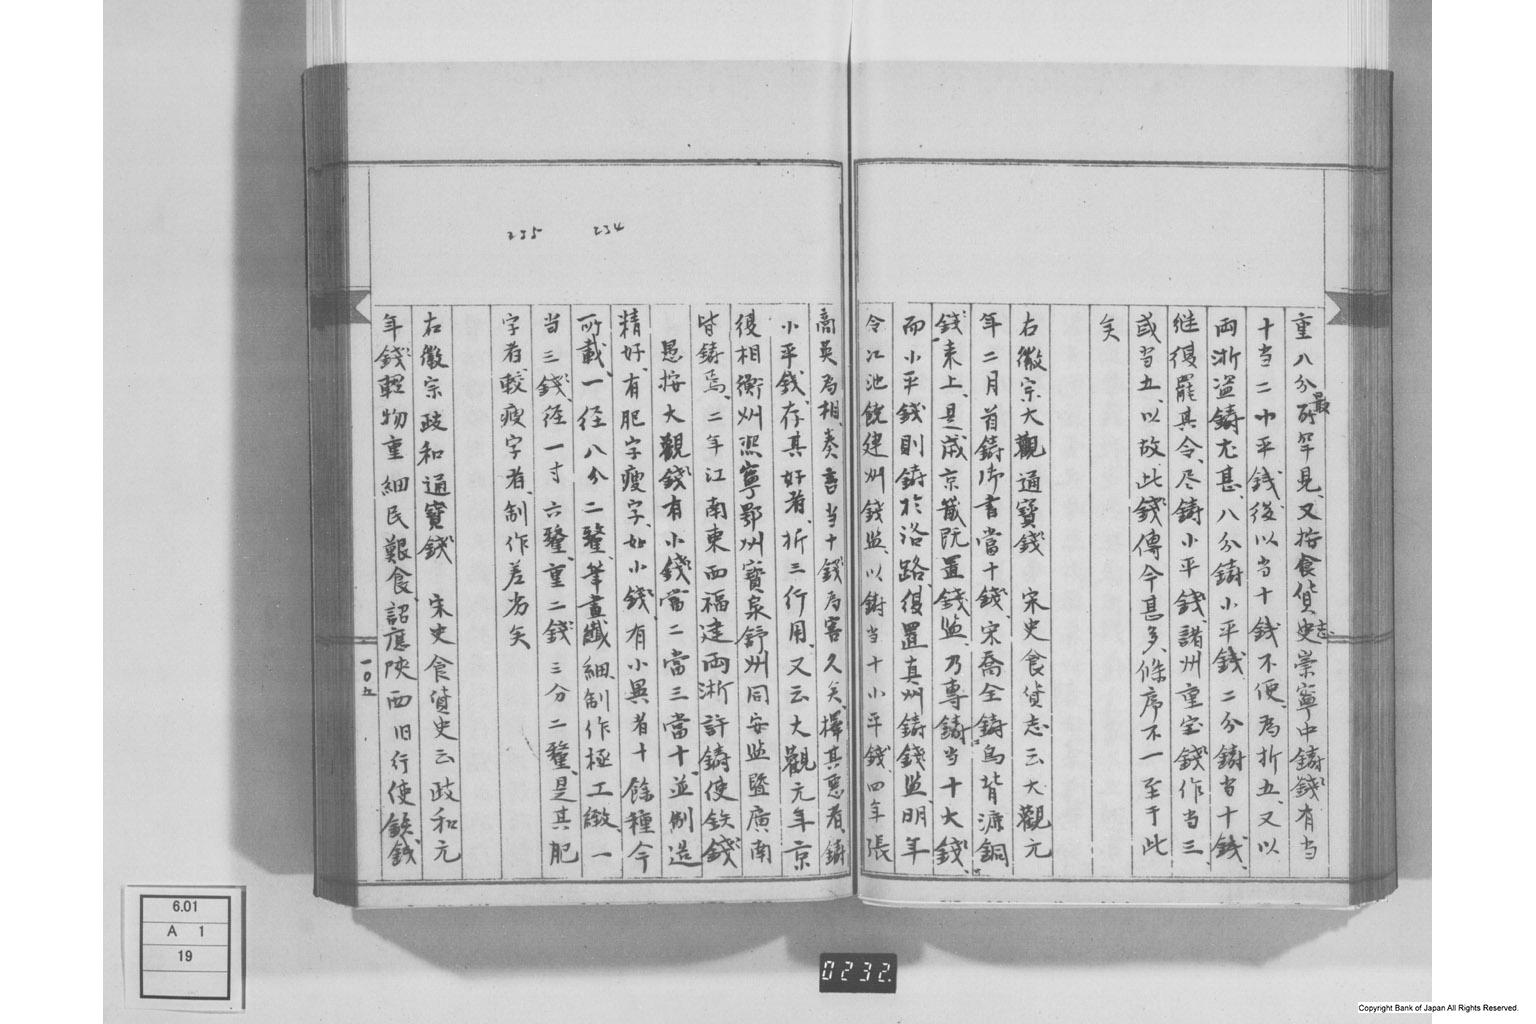 重八分所最罕見、又按食貨史志崇寧中鋳錢有当
十当二小平錢後以当十錢不便為折五、又以
両浙盗鋳尤甚、八分鋳小平錢二分鋳当十錢、
継復罷其令、尽鋳小平錢、諸州重宝錢作当三、
或当五、以故此錢傳今甚多、條序不一至于此
矣
右徽宗大觀通寶錢　宋史食貨志云大觀元
年二月首鋳御書當十錢、宋喬全鋳烏背漉銅
錢来上、是歳京畿既置錢监、乃專鋳当十大錢、
而小平錢則鋳於洛路、復置真州鋳錢监、明年
令江池饒建州錢监、以鋳当十小平錢、四年張
商英為相、奏言当十錢為害久矣、擇其悪者、鋳
小平錢、存其好者、折三行用、又云大觀元年京
復相衡州熙寧鄂州寳泉舒州同安监暨廣南
皆鋳焉、二年江南東西福建両浙許鋳使鉄錢
愚按大觀錢有小錢當二當三當十、並制造
精好、有肥字瘦字、如小錢、有小異者十餘種今
所載、一径八分二釐、筆畫纖細制作極工緻、一
当三錢、径一寸六釐、重二錢三分二釐、是其肥
字者、較瘦字者、制作差劣矣
右徽宗政和通寶錢　宋史食貨史云政和元
年錢輕物重細民艱食、詔應陝西旧行使鉄錢
一〇五
234
235
6.01
A 1
19
0232.
Copyright Bank of Japan All Rights Reserved.